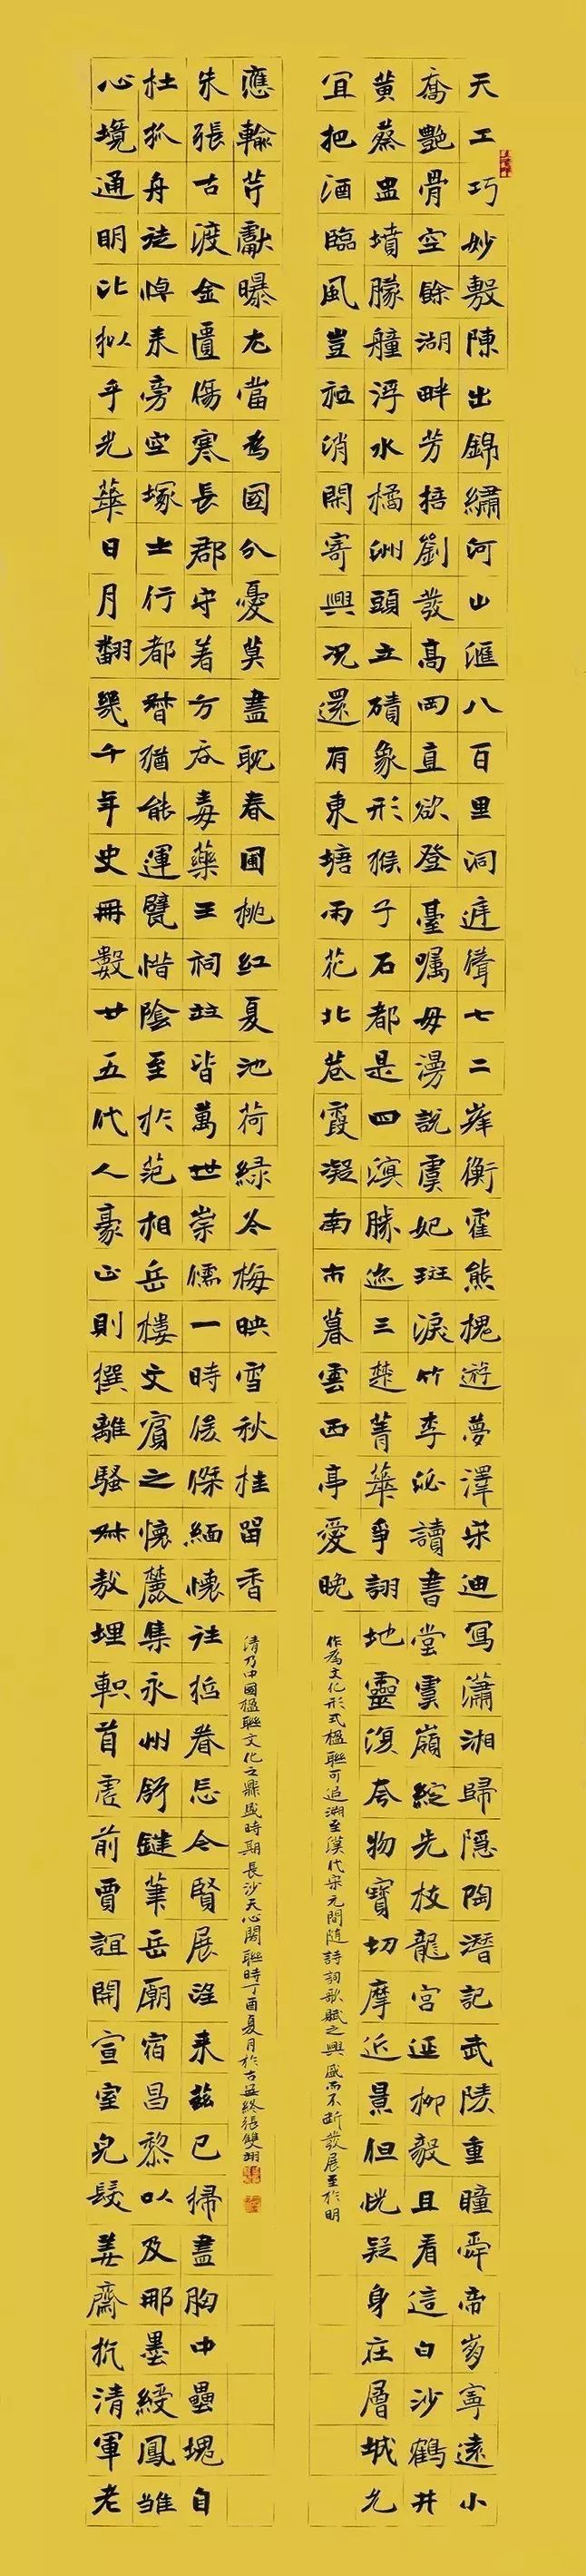 天工巧妙敷陳出錦繡河山滙八百里洞庭聳七二峯衡霍熊槐遊夢澤宋迪寫瀟湘歸隐陶潛記武陵重瞳舜帝寧遠小
喬艷骨空餘湖畔芳劉發高岡直欲登臺囑毋謾說虞妃斑淚竹李泌讀書堂雲嶺綻先枝龍宮迎柳毅且看這白沙鶴井
黄蔡盅墳朦艟浮水橘洲頭立磧象形猴子石都是四濵勝迹三楚菁華爭詡地靈復夸物寶切摩近景但恍疑身在層城允
宜把酒臨風豈祗消閑寄興况還有東塘雨花北巷霞凝南市暮雲西亭愛晚
作爲文化形式楹聯可追溯至漢代宋元間隨詩詞歌賦之興盛而不斷發展至於明
心境通明比拟乎光華日月翻幾千年史冊數廿五代人豪正則撰離騷叔敖埋軹首虎前賈誼開宣室皃髮姜齋抗清軍老
杜孤舟悼耒旁空塚士行都督猶能運甓惜陰至於范相岳樓文賓之懷麓集永州舒鏈筆岳廟宿昌黎以及那墨綬鳳雏
朱張古渡金匱傷寒長郡守着方吞毒藥王祠竝皆萬世崇儒一時俊傑緬懷往哲眷念今賢展望来兹已掃盡胸中壘塊自
應輸芹獻曝尤當爲國分憂莫盡耽春圃桃紅夏池荷緑冬梅映雪秋桂留香
清乃中國楹聯文化之鼎盛時期長沙天心閣聯時丁酉夏月於古張雙翊